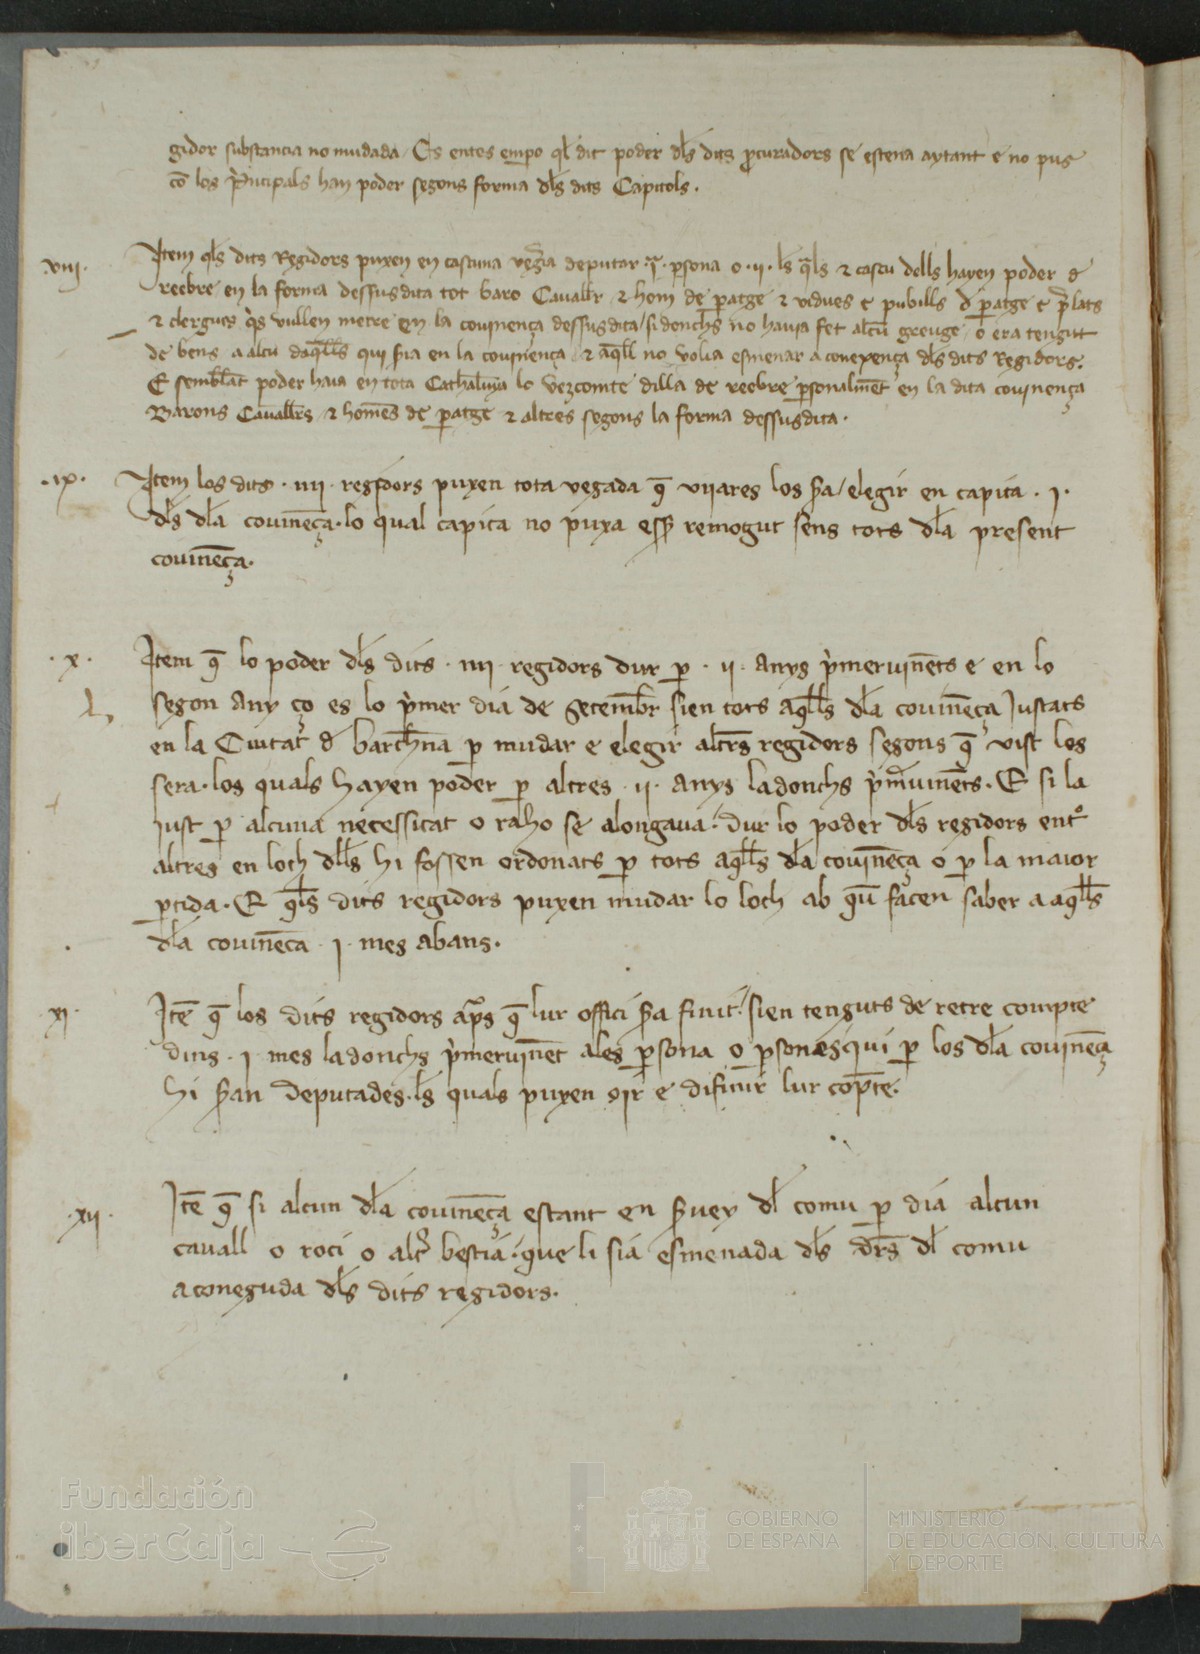 gidor substancia no mudada / Es entes empo ql dit poder dls dits pcuradors se estena aytant e no pus
co los pncipals han poder segons forma dls dits Capitols .
.viij. Item qls dits Regidors puxen en cascuna vegia deputar .ia. psona o .ii. ls qals & cascu dells hayen poder d
reebre en la forma dessusdita tot baro Cavaller & hom de patge & vidues e pubills d patge e plats
& clergues qs vullen metre en la covinença dessusdita / si donchs no havia fet alcu greuge o era tengut
de bens a alcu daqlls qui sia en la covinença & aqll no volia esmenar a conexença dls dits Regidors.
E semblat poder haia en tota Cathaluya lo vezcomte dilla de reebre psonalmet en la dita covinença
Barons Cavallrs & homes de patge & altres segons la forma dessusdita .
.ix. Item los dits .iiii. regidors puxen tota vegada q viiares los sa / elegir en capita . i .
dls dla covineça . lo qual capita no puxa ess remogut sens tots dla present
covineça .
. x . Item q lo poder dls dits .iiii. regidors dur p . ii . anys pmervinets e en lo
segon any ço es lo pmer dia de Setembr sien tots aqlls dla covineça Iustats
en la Ciutat d barchna p mudar e elegir altrs regidors segons q vist los
sera . los quals hayen poder p altres . ii . anys ladonchs pmervinets . E si la
iust p alcuna necessitat o raho se alongava / dur lo poder dls regidors entro
altres en loch dlls hi fossen ordonats p tots aqlls dla covineça o p la maior
ptida . E qls dits regidors puxen mudar lo loch ab qu facen saber a aqlls
dla covineça . i . mes abans .
. xi . Ite q los dits regidors aps q lur offici sa finit / sien tenguts de retre compte
dins . i . mes ladonchs pmervinet ales psona o psones qui p los dla covineça
hi san deputades . ls quals puxen oir e difinir lur copte .
. xii . Ite q si alcun dla covineça estant en svey dl comu p dia alcun
cavall o roci o altr bestia / que li sia esmenada dls drs dl comu
a coneguda dls dits regidors .
Fundación
iberCaja
GOBIERNO
DE ESPAÑA
MINISTERIO
DE EDUCACIÓN, CULTURA
Y DEPORTE